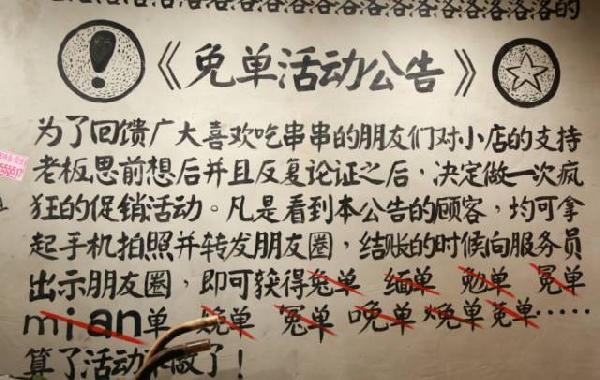 落落落落落落落落落的
《免单活动公告》
为了回馈广大喜欢吃串串的朋友们对小店的支持
老板思前想后并且反复论证之后，决定做一次疯
狂的促销活动。凡是看到本公告的顾客，均可拿
起手机拍照并转发朋友圈，结账的时候向服务员
出示朋友圈，即可获得兔单 缅单 勉单 冕单
mian单 晚单 冤单 晚单 娩单 免单……
算了活动不做了！